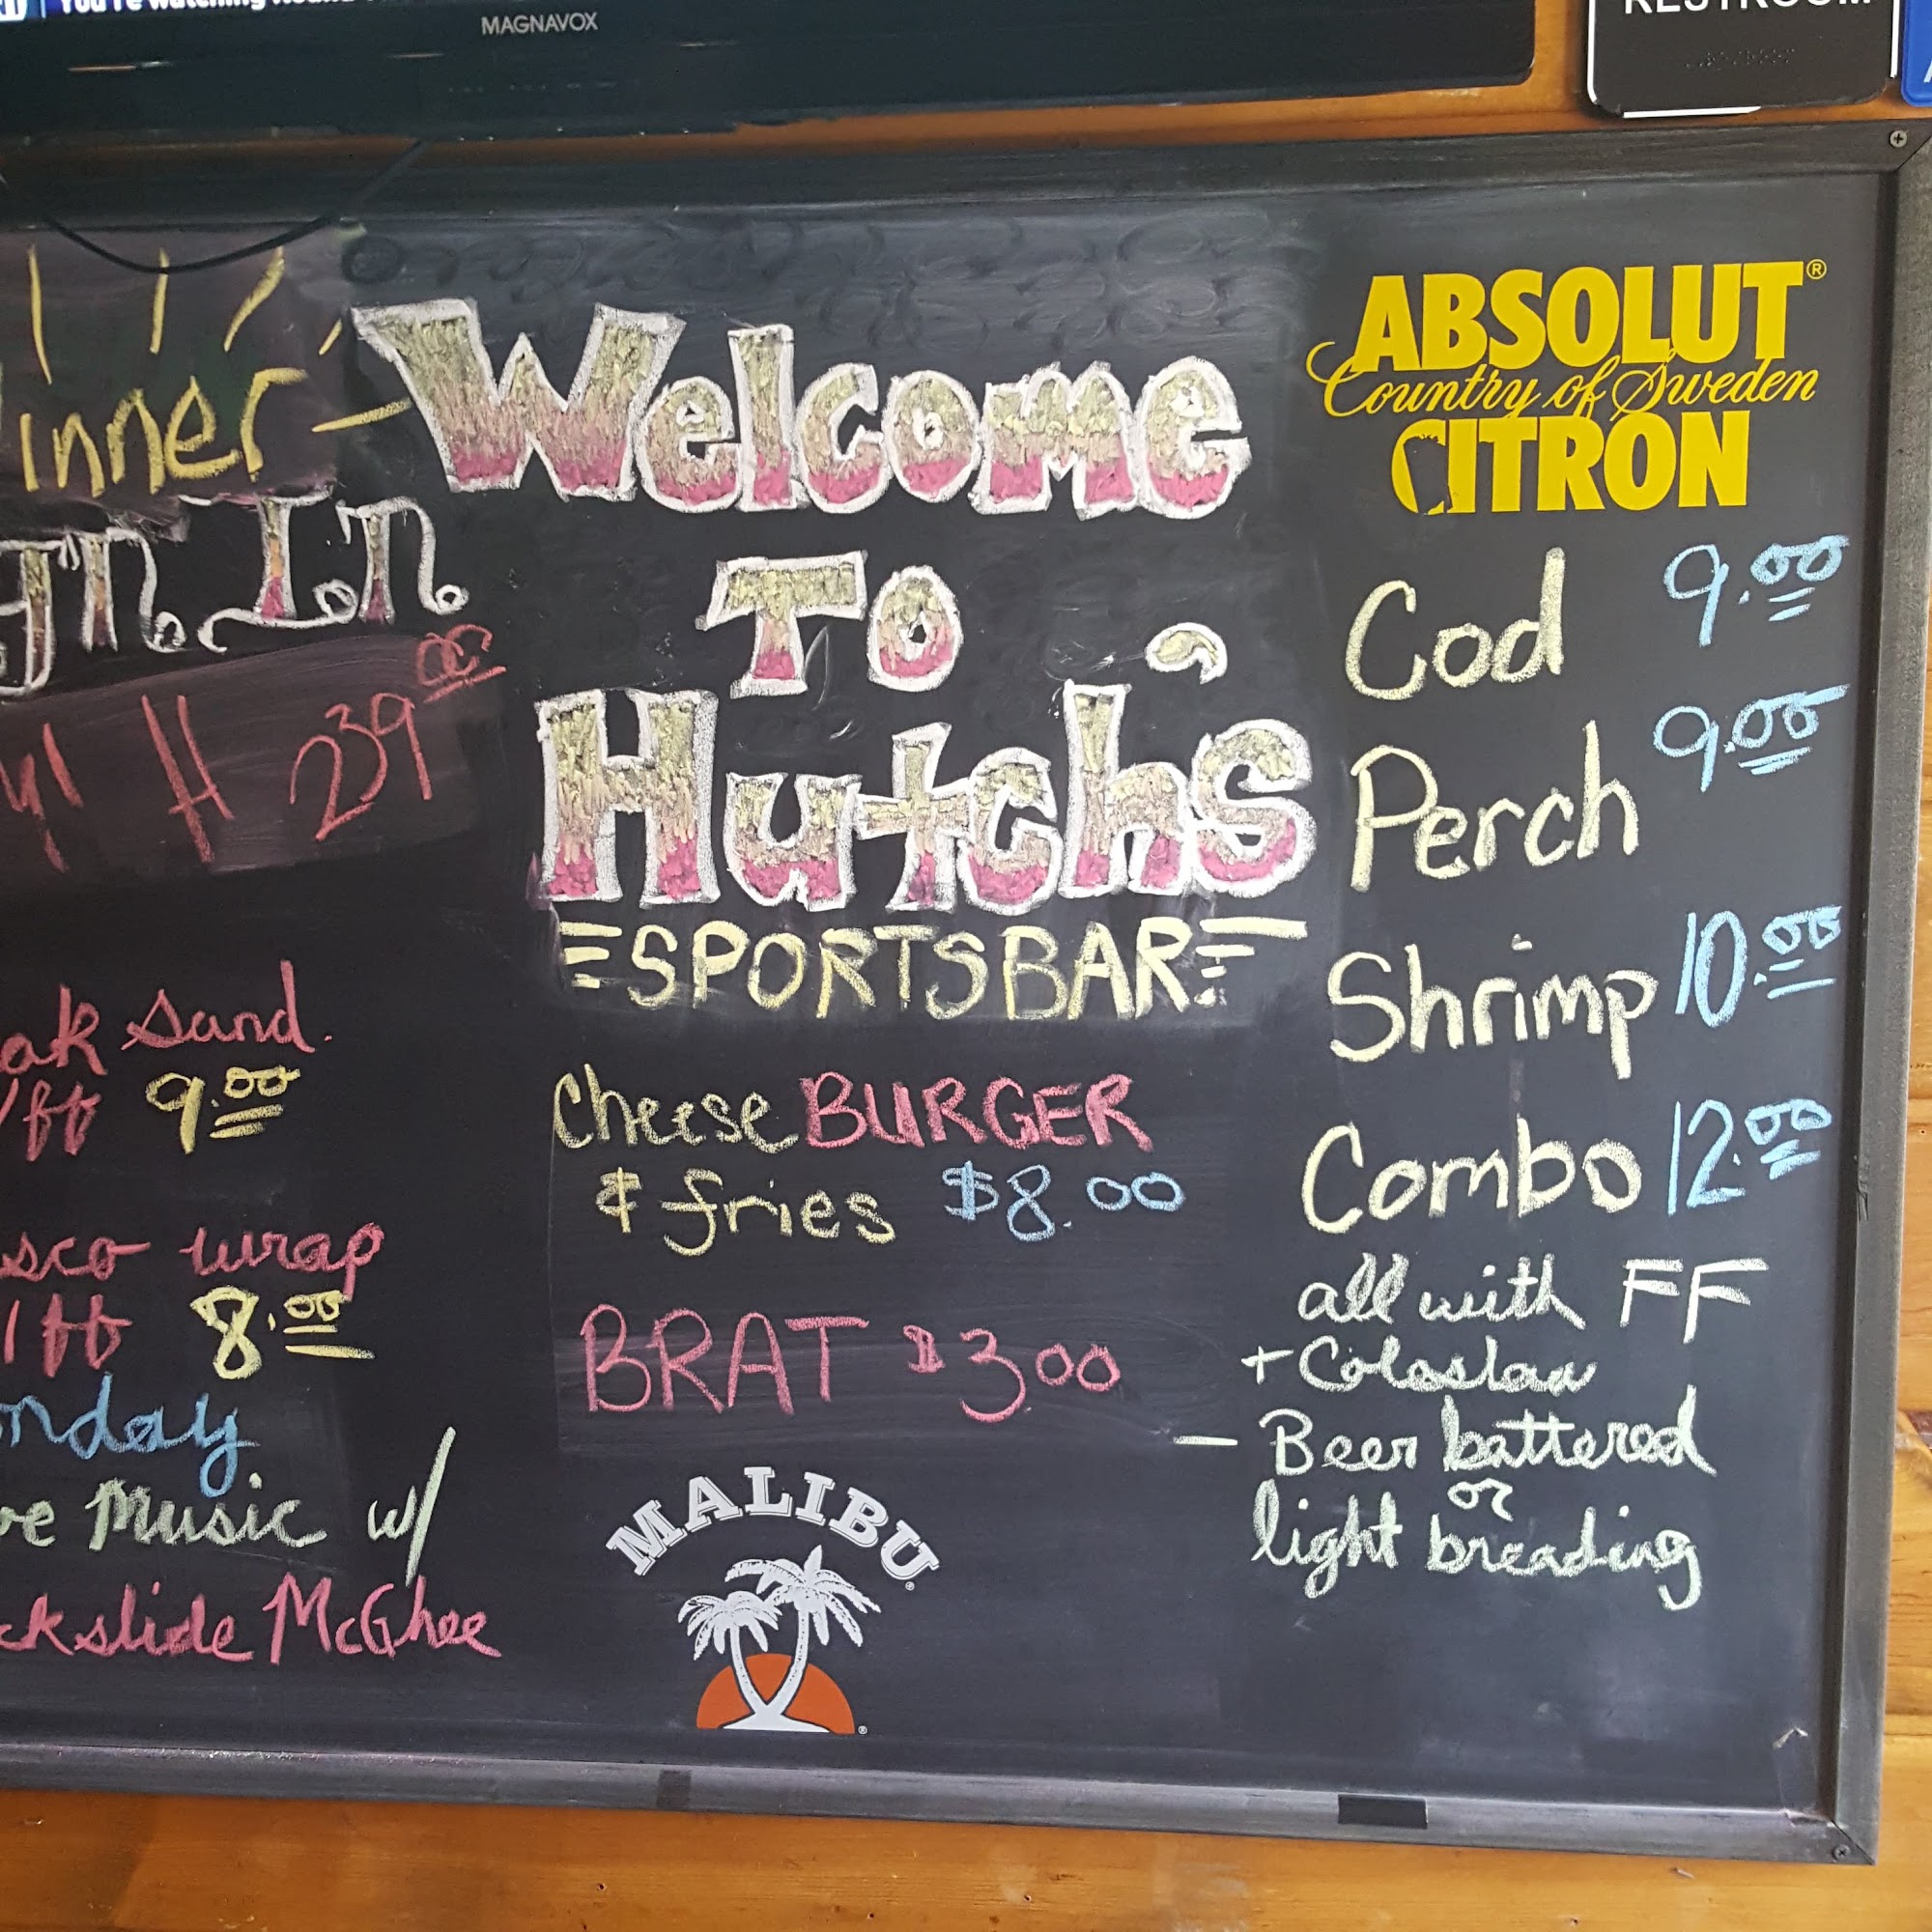 You're watching
MAGNAVOX
RESTROOM
inner
In
239 00
ak Sand.
/ff 9.00
sco wrap
/ff 8.00
nday
ve Music w/
ckslide McGhee
Welcome
To
Hutch's
SPORTS BAR
Cheese BURGER
& fries $8.00
BRAT $3.00
MALIBU
ABSOLUT®
Country of Sweden
CITRON
Cod 9.00
Perch 9.00
Shrimp 10.00
Combo 12.00
all with FF
+ Coloslaw
- Beer battered
or
light breading